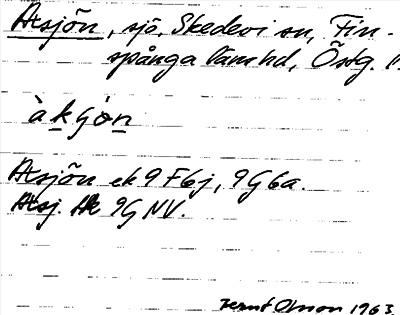 Atsjön, sjö, Skedevi sn, Fin-
spånga läns hd, Östg. l.
àkʃön
Atsjön ek 9 F6j, 9G6a.
Atsj. Hk 9G NV.
Olson 1963